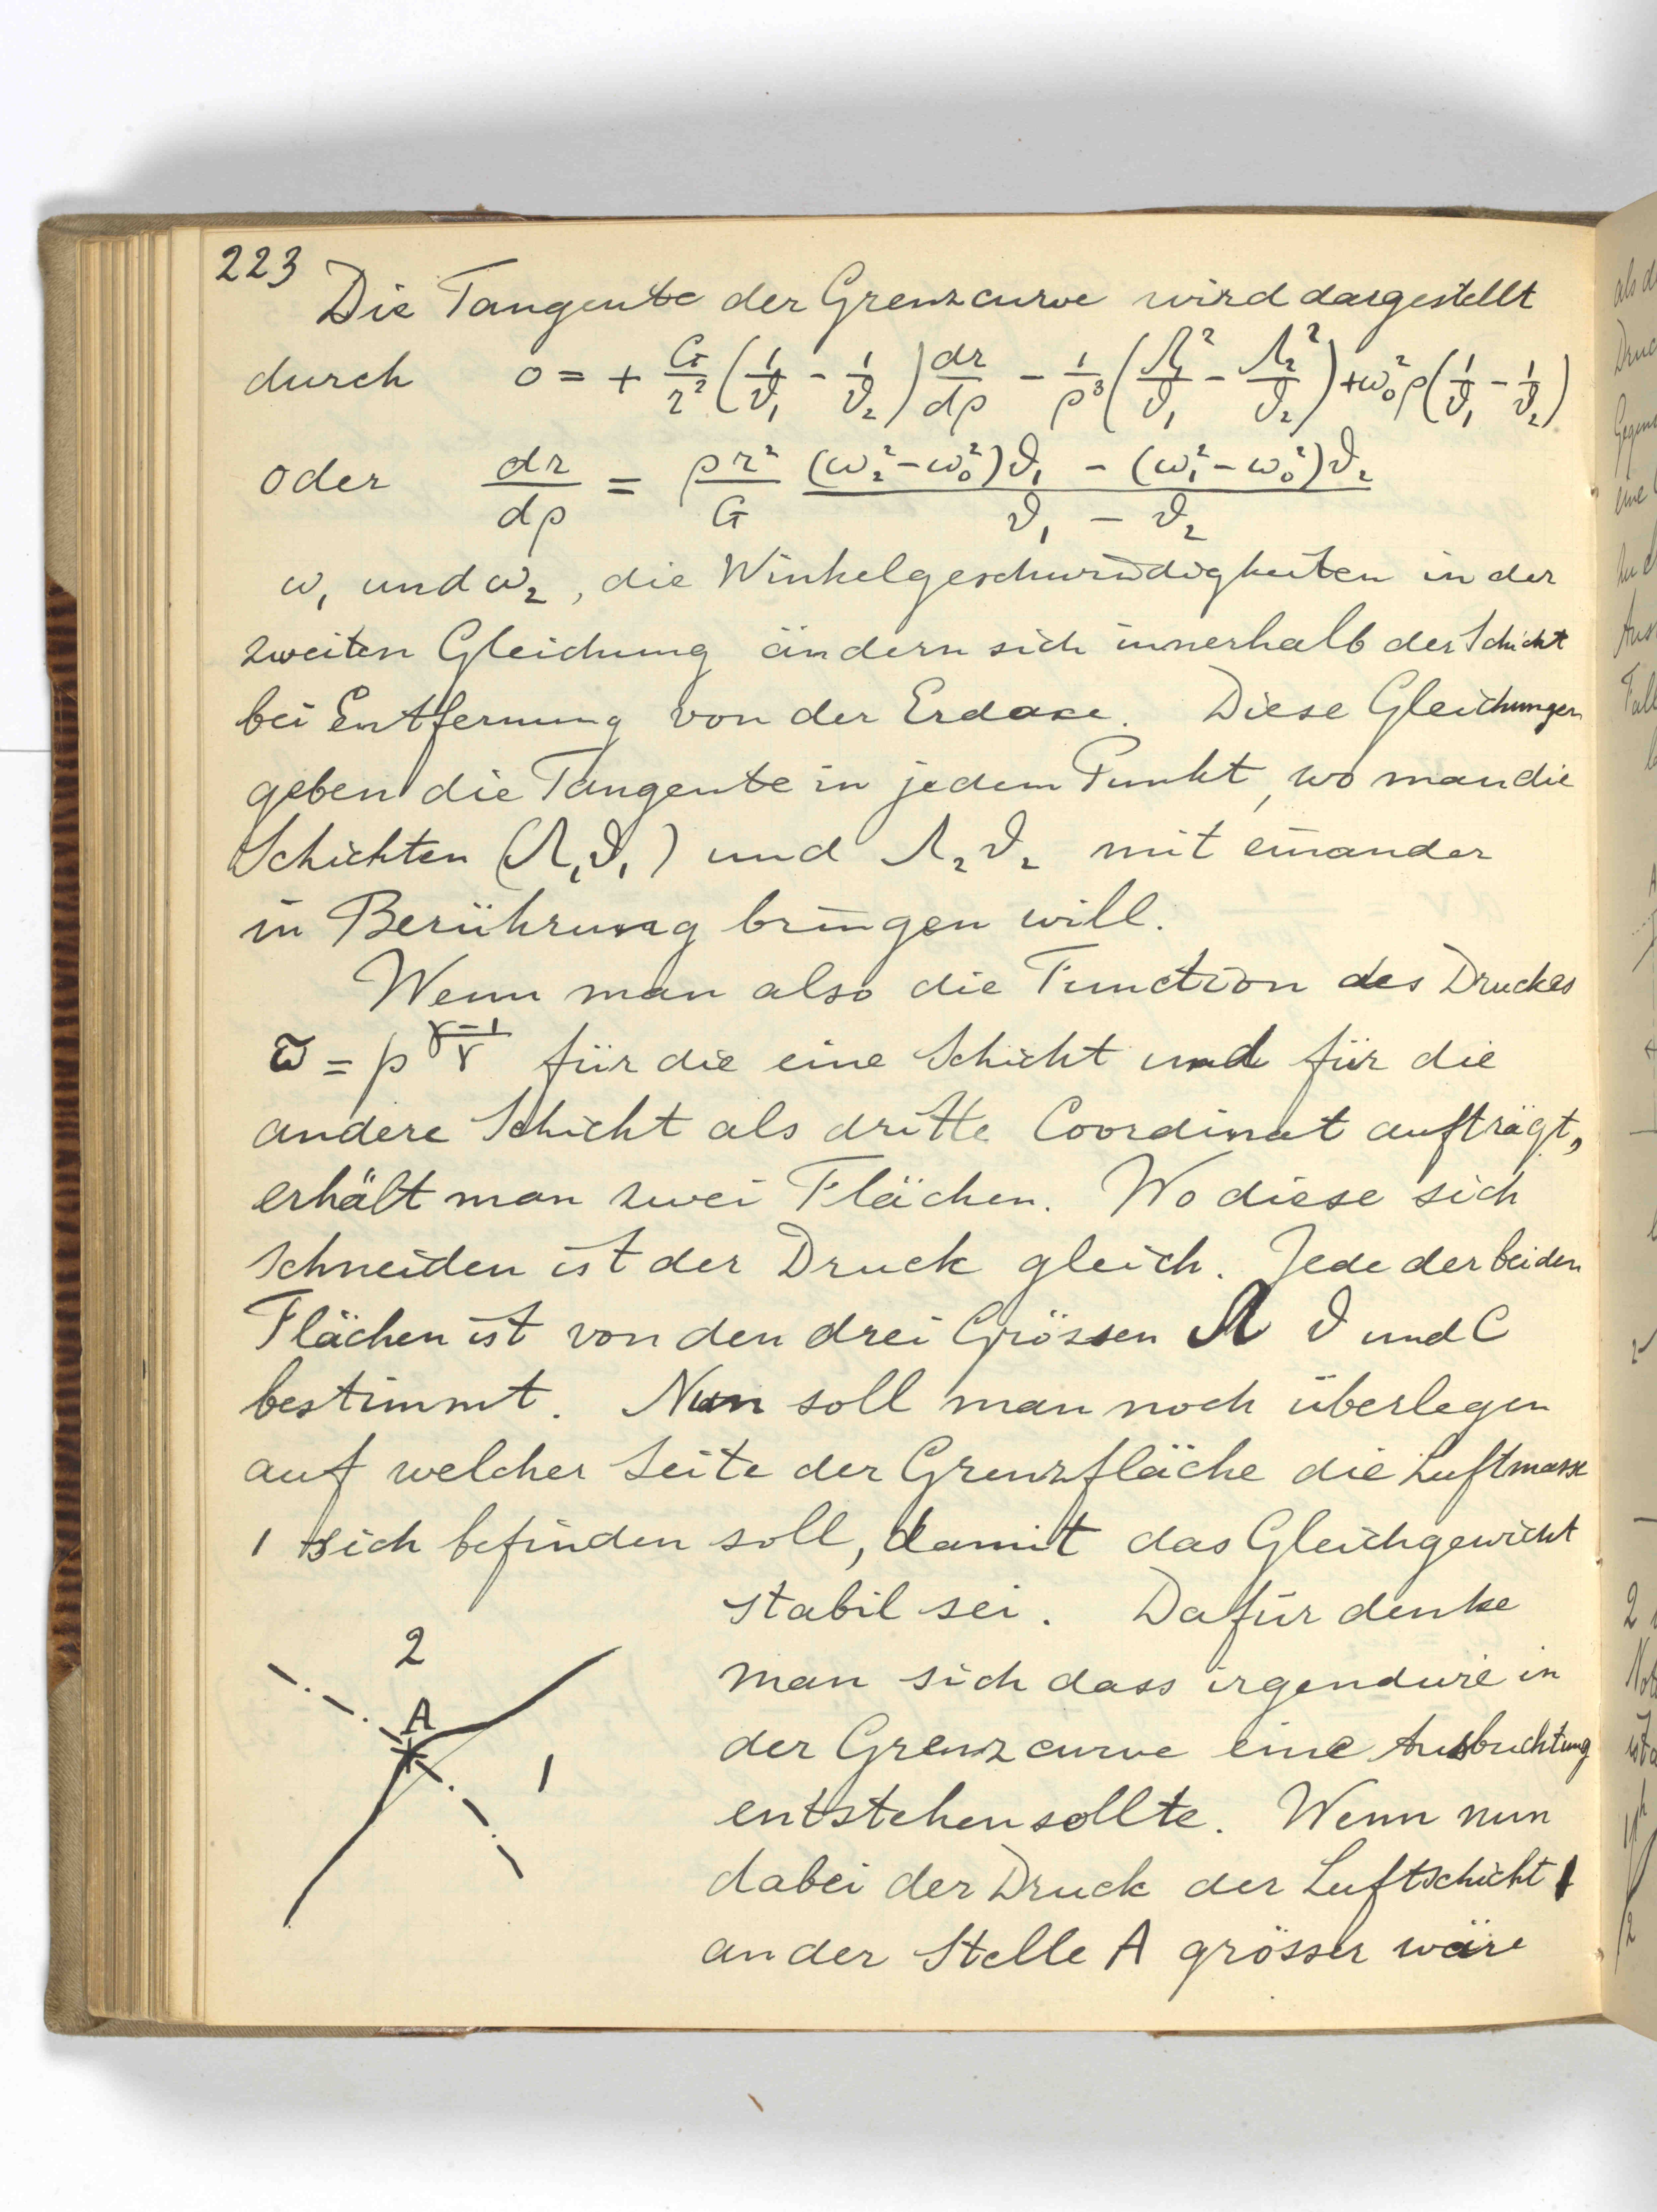 223
Die Tangente der Grenzcurve wird dargestellt
durch 0 = + G/r² (1/ϑ₁ - 1/ϑ₂) dr/dρ - 1/ρ³ (Λ₁²/ϑ₁ - Λ₂²/ϑ₂) + ω₀² ρ (1/ϑ₁ - 1/ϑ₂)
oder dr/dρ = ρr²/G ((ω₂² - ω₀²)ϑ₁ - (ω₁² - ω₀²)ϑ₂)/(ϑ₁ - ϑ₂)
ω₁ und ω₂, die Winkelgeschwindigkeiten in der
zweiten Gleichung ändern sich innerhalb der Schicht
bei Entfernung von der Erdaxe. Diese Gleichungen
geben die Tangente in jedem Punkt, wo man die
Schichten (Λ₁ϑ₁) und Λ₂ϑ₂ mit einander
in Berührung bringen will.
Wenn man also die Function des Druckes
ϖ = p^(γ-1)/γ für die eine Schicht und für die
andere Schicht als dritte Coordinat aufträgt,
erhält man zwei Flächen. Wo diese sich
schneiden ist der Druck gleich. Jede der beiden
Flächen ist von den drei Grössen Λ ϑ und C
bestimmt. Nun soll man noch überlegen
auf welcher Seite der Grenzfläche die Luftmasse
1 sich befinden soll, damit das Gleichgewicht
stabil sei. Dafür denke
man sich dass irgendwie in
der Grenzcurve eine Ausbuchtung
entstehen sollte. Wenn nun
dabei der Druck der Luftschicht 1
an der Stelle A grösser wäre
2
A
1